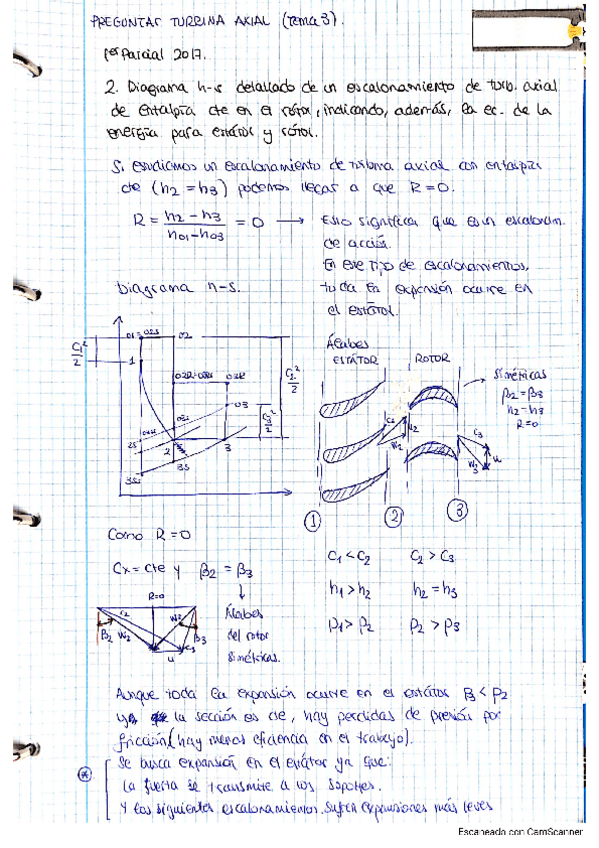 PREGUNTAS TURBINA AXIAL (Tema 3).
1er Parcial 2017.
2. Diagrama h-s detallado de un escalonamiento de turb. axial
de entalpía cte en el rotor, indicando, además, la ec. de la
energía para estátor y rotor.
Si estudiamos un escalonamiento de turbina axial con entalpía
cte (h2 = h3) podemos llegar a que R=0.
R = h2 - h3 / h01 - h03 = 0 → Esto significa que es un escalonam.
de acción.
En este tipo de escalonamientos,
toda la expansión ocurre en
el estátor.
Diagrama h-s.
Álabes
ESTÁTOR ROTOR
simétricas
β2 = β3
h2 = h3
R=0
C1²/2
01=02s 02
1
02R 03R
03
C3²/2
2s
2 3
3s
C2 W2 U2
C3 W3 U
1 2 3
Como R=0
Cx = cte y β2 = β3
R=0
β2 W2 W3 β3
C3
U
Álabes
del rotor
simétricas.
C1 < C2 C2 > C3
h1 > h2 h2 = h3
p1 > p2 p2 > p3
Aunque toda la expansión ocurre en el estátor p3 < p2
ya que la sección es cte, hay perdidas de presión por
fricción (hay menos eficiencia en el trabajo).
Se busca expansión en el estátor ya que:
La fuerza se transmite a los soportes.
Y los siguientes escalonamientos sufren expansiones más leves
Escaneado con CamScanner